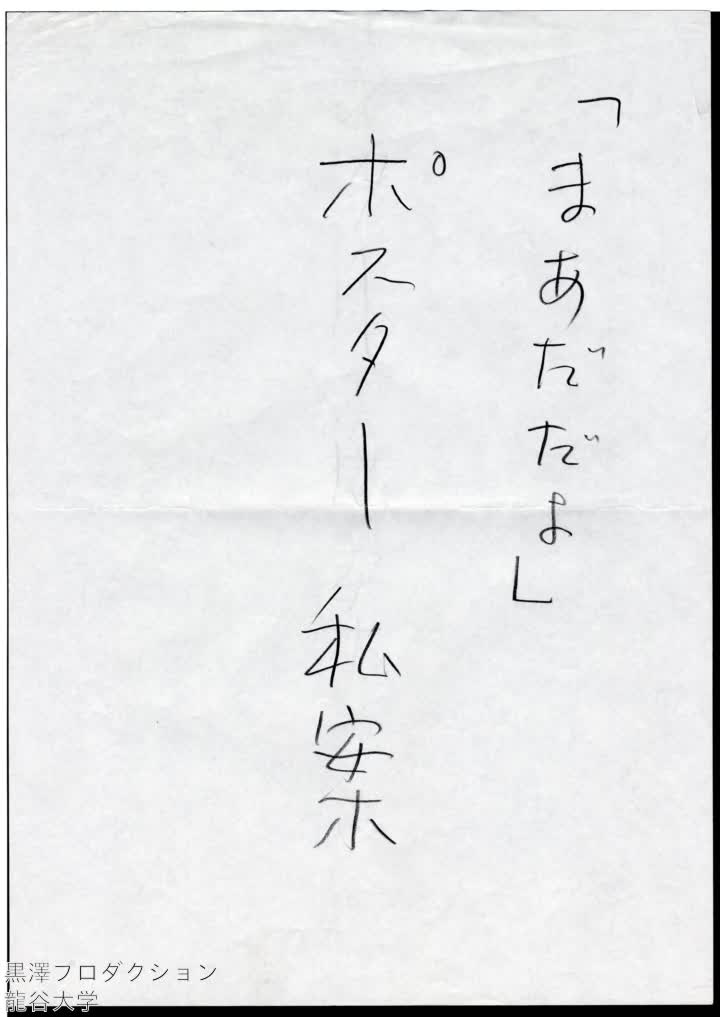 「まあだだよ」
ポスター 私案
黒澤プロダクション
龍谷大学